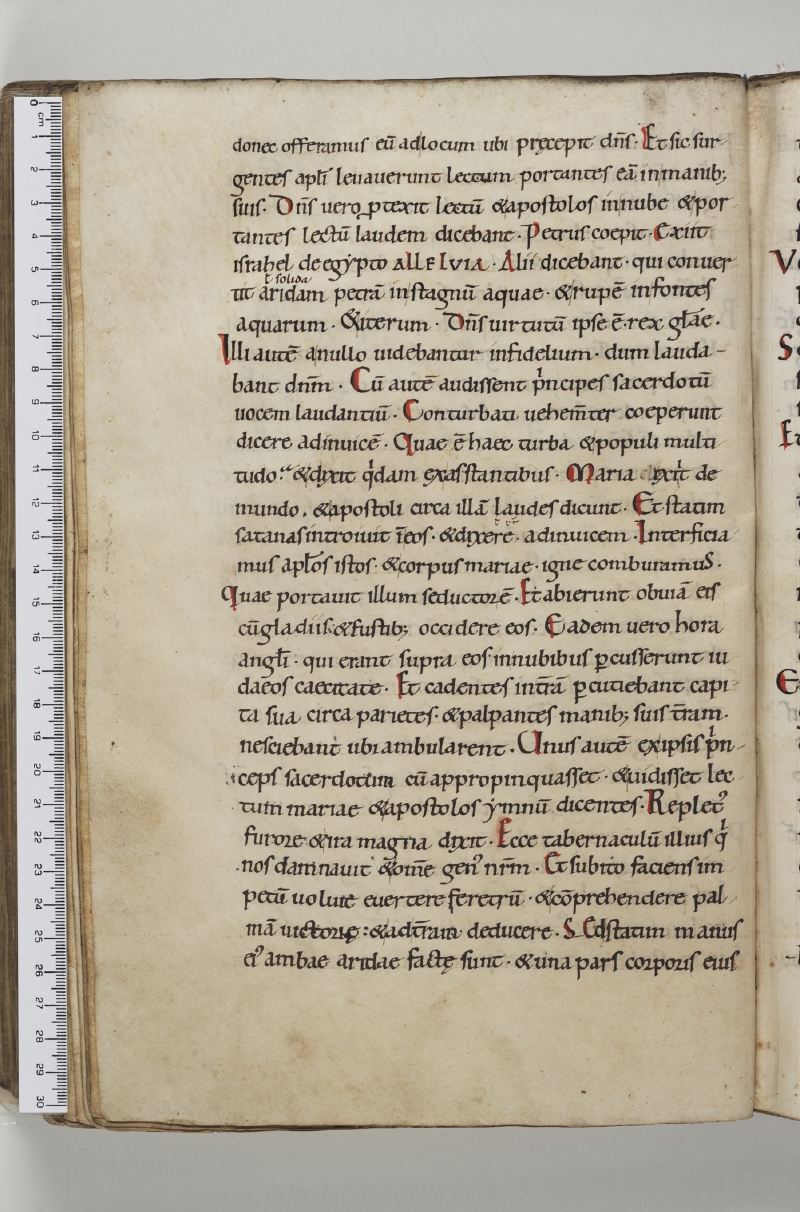 donec offeramus eū ad locum ubi pręcepit dn̄s · Et sic sur
gentes apłi leuauerunt lectum portantes eā in manib;
suis · Dn̄s uero ꝓtexit lectū & apostolos in nube & por
tantes lectū laudem dicebant · Petrus coepit · Exiit
israhel de egẏpto ALLELVIA · Alii dicebant · qui conuer
ł solida
tit aridam petrā in stagnū aquae · & rupē in fontes
aquarum · & iterum · Dn̄s uirtutū ipse ē · rex głae ·
Illi autē a nullo uidebantur infidelium · dum lauda-
bant dnm̄ · Cū autē audissent pͥncipes sacerdotū
uocem laudantiū · Conturbati uehem̄ter coeperunt
dicere adinuicē · Quae ē haec turba & populi multi
tudo · & dixit qͥdam ex asstantibus · Maria exiit de
mundo · & apostoli circa illā laudes dicunt · Et statim
satanas introiuit ī eos · & dixerē · adinuicem · Interficia
mus apłos istos · & corpus mariae · igne comburamus ·
Quae portauit illum seductorē · Et abierunt obuiā eis
cū gladiis · & fustib; occidere eos · Eadem uero hora
angłi · qui erant supra eos in nubibus ꝑcusserunt iu
daeos caecitate · Et cadentes in trā ꝑcutiebant capi
ta sua circa parietes · & palpantes manib; suis tr̄am ·
nesciebant ubi ambularent · Unus autē ex ipsis pͥn
ceps sacerdotum cū appropinquasset · & uidisset lec
tum mariae & apostolos ẏmnū dicentes · Replet᾿
furore & ira magna dixit · Ecce tabernaculū illius qͥ
nos damnauit & om̄e gen᾿ nr̄m · Et subito faciens im
petū uoluit euertere feretrū · & cōprehendere pal
mā uictorię : & ad tr̄am deducere · Sed statim manus
ei᾿ ambae aridae factę sunt · & una pars corporis eius